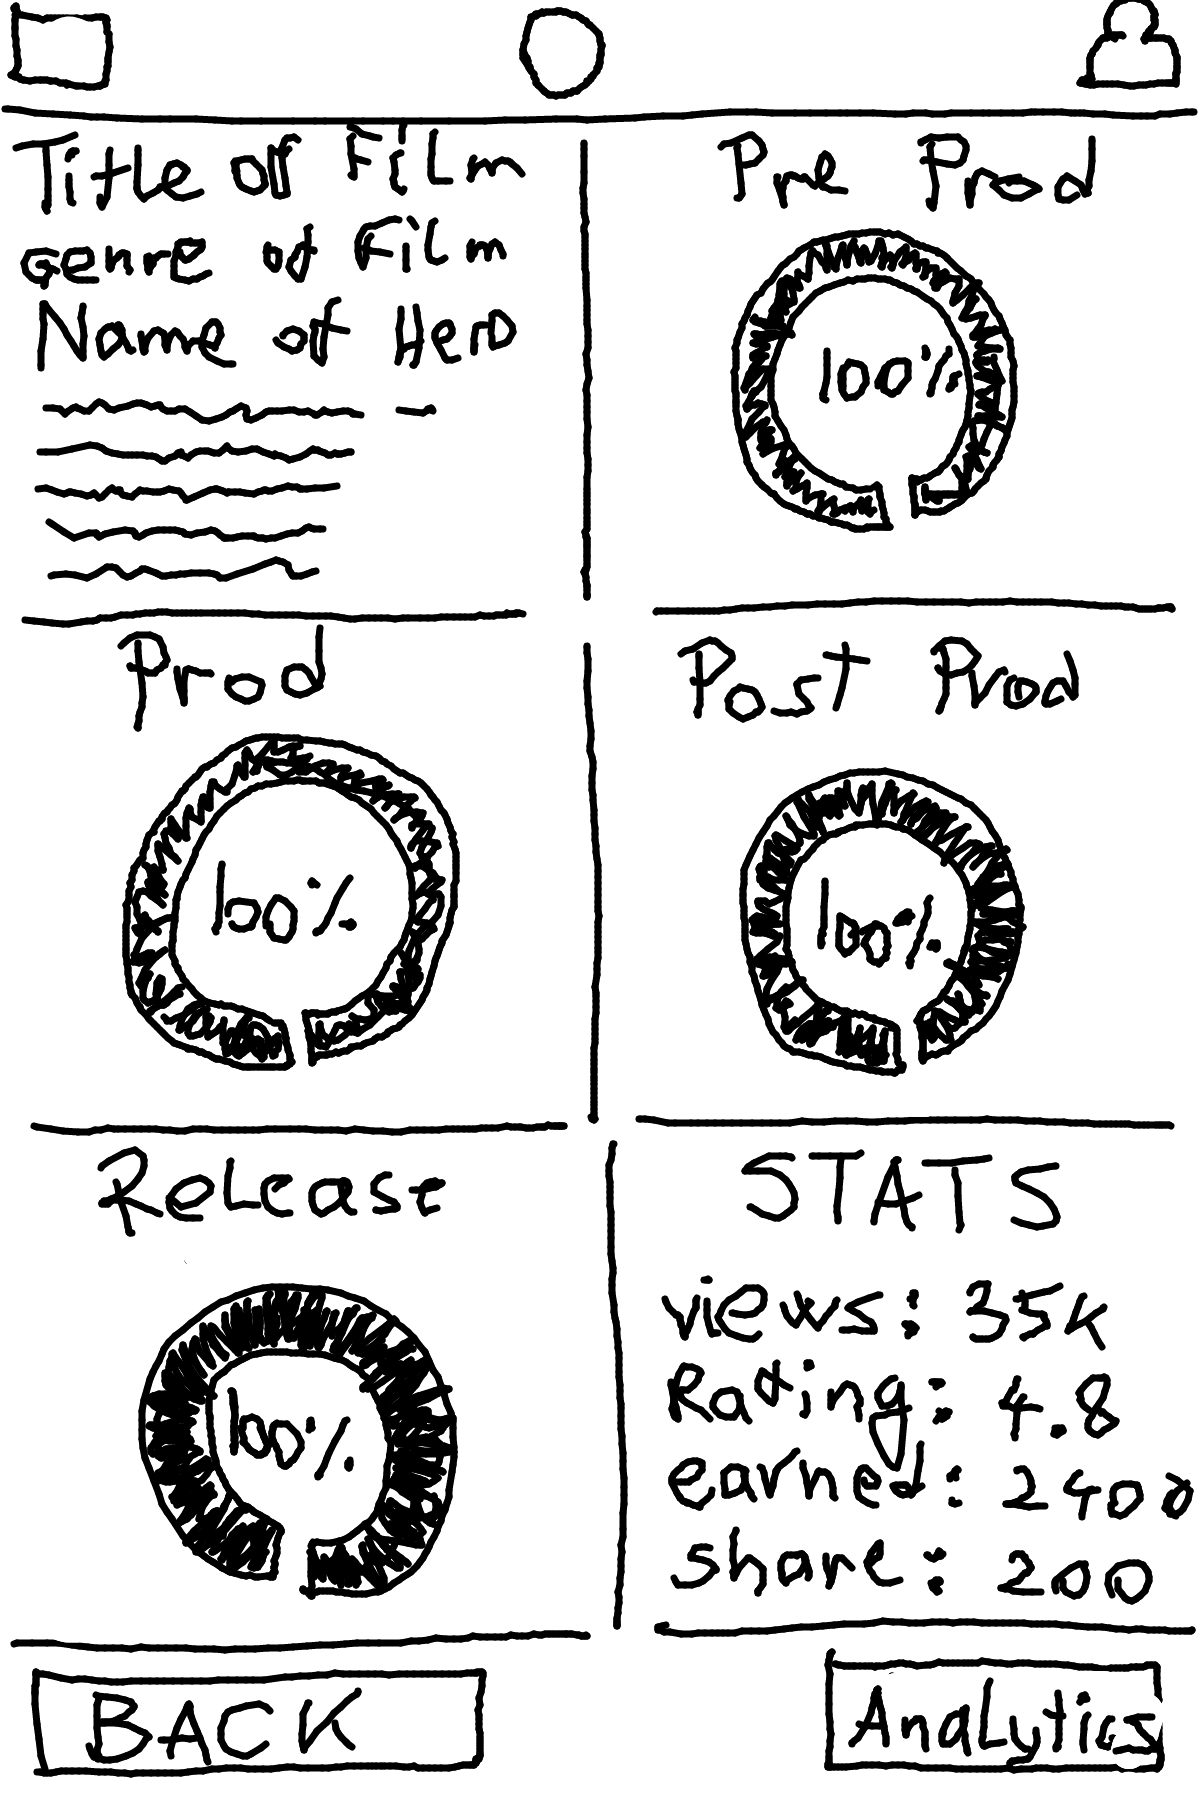 Title of Film
genre of Film
Name of Hero
Pre Prod
100%
Prod
100%
Post Prod
100%
Release
100%
STATS
views: 35k
Rating: 4.8
earned: 2400
share: 200
BACK
Analytics